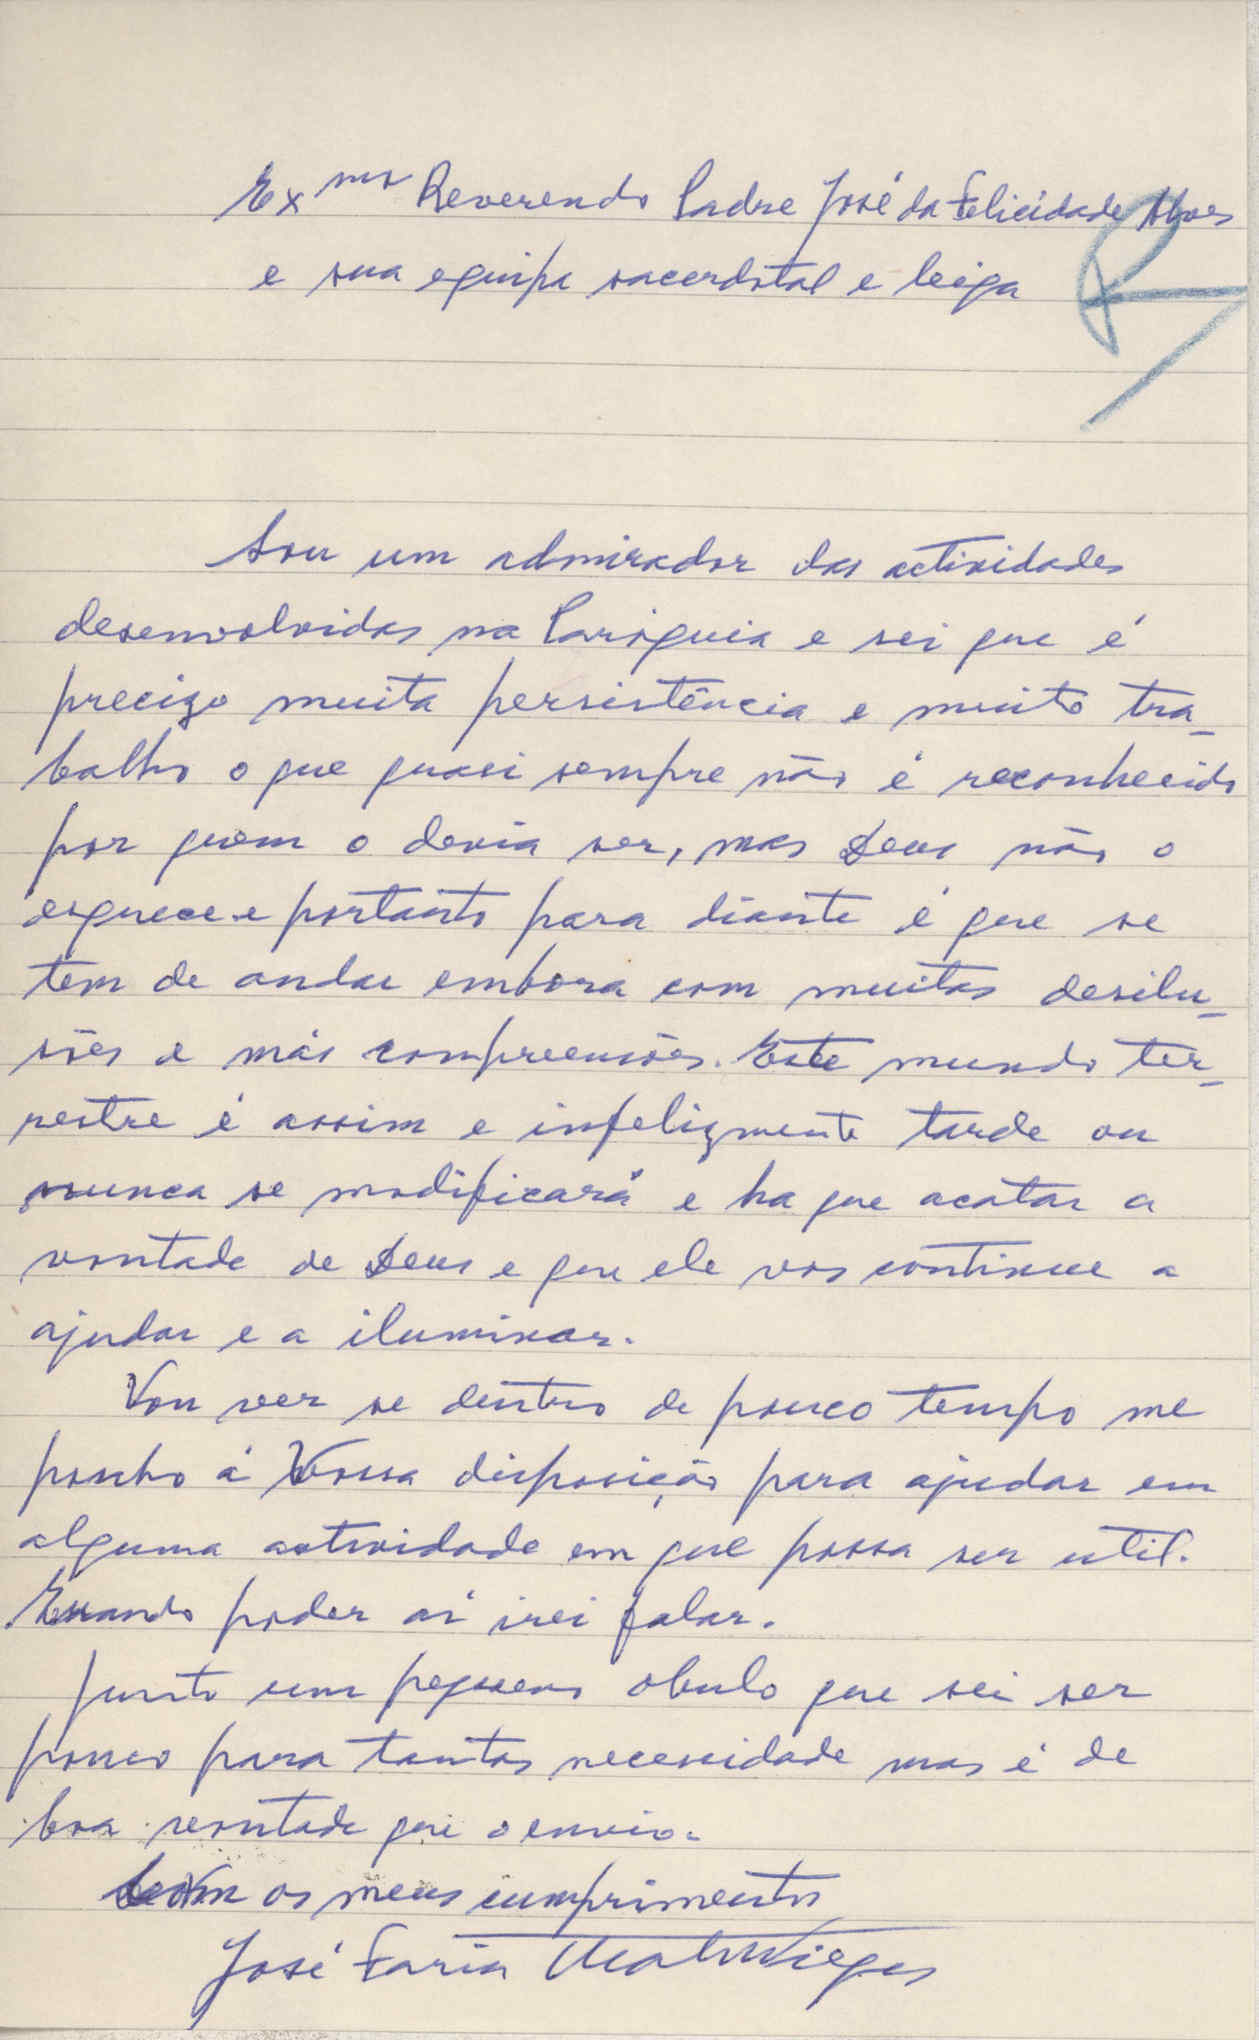 Exmo Reverendo Padre José da Felicidade Alves
e sua equipa sacerdotal e leiga
Sou um admirador das actividades
desenvolvidas na Paróquia e sei que é
precizo muita persistência e muito tra_
balho o que quasi sempre não é reconhecido
por quem o devia ser, mas Deus não o
esquece e portanto para diante é que se
tem de andar embora com muitas desilu_
sões e más compreensões. Este mundo ter_
restre é assim e infelizmente tarde ou
nunca se modificará e ha que acatar a
vontade de Deus e que ele vos continue a
ajudar e a iluminar.
Vou ver se dentro de pouco tempo me
ponho á Vossa disposição para ajudar em
alguma actividade em que possa ser util.
Quando poder aí irei falar.
Junto um pequeno obulo que sei ser
pouco para tantas necessidade mas é de
boa vontade que o envio.
Com os meus cumprimentos
José Faria Viegas